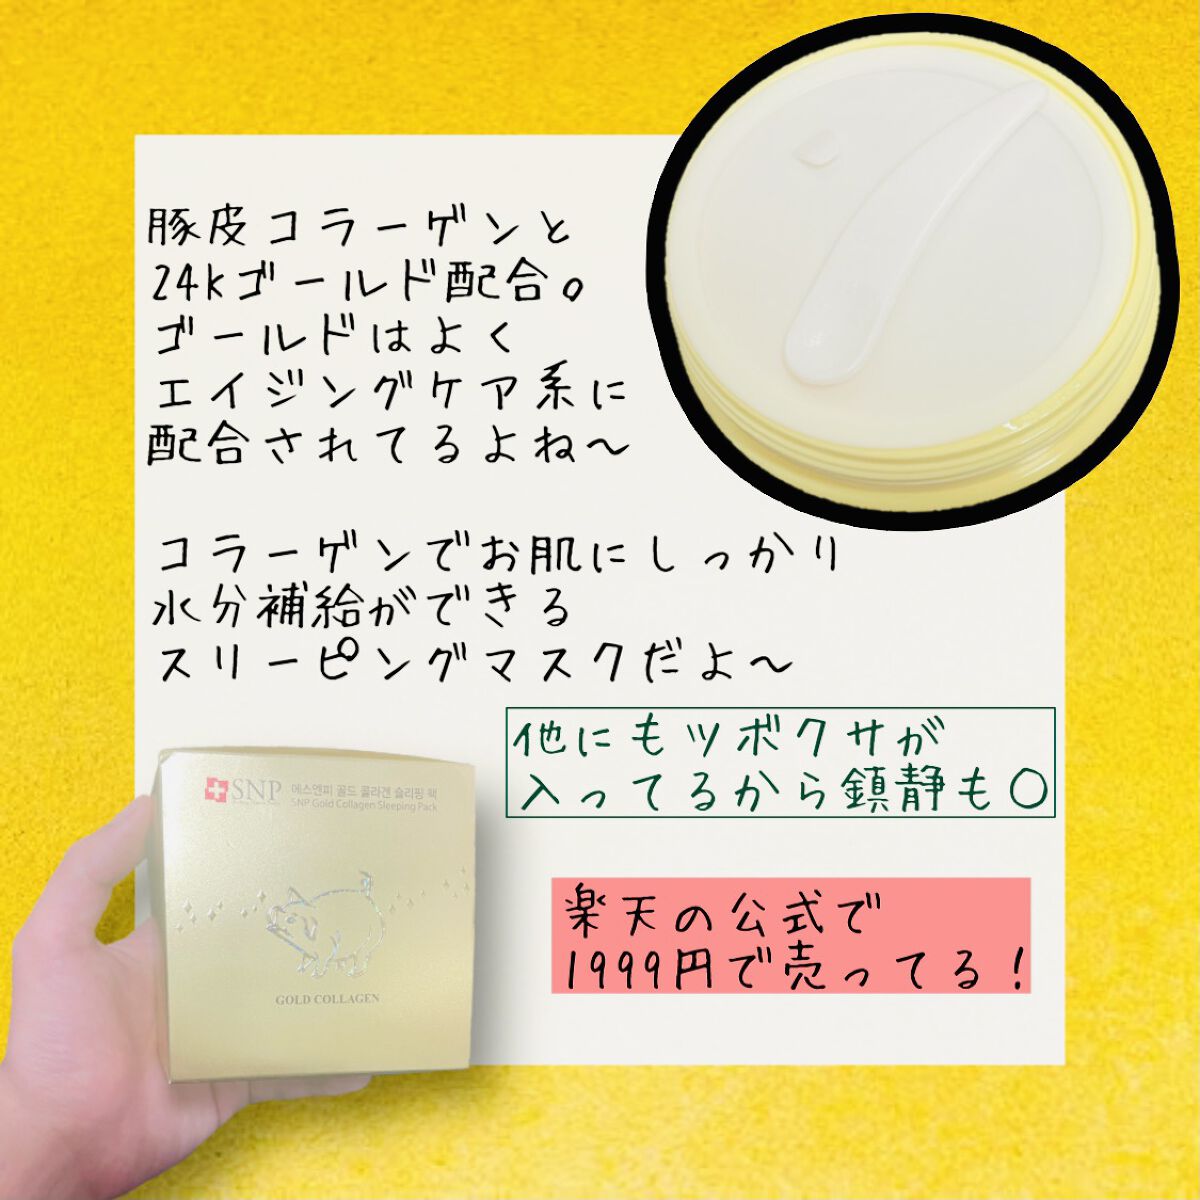 豚皮コラーゲンと
24kゴールド配合。
ゴールドはよく
エイジングケア系に
配合されてるよね〜
コラーゲンでお肌にしっかり
水分補給ができる
スリーピングマスクだよ〜
他にもツボクサが
入ってるから鎮静も〇
楽天の公式で
1999円で売ってる！
SNP 에스엔피 골드 콜라겐 슬리핑 팩
SNP Gold Collagen Sleeping Pack
GOLD COLLAGEN